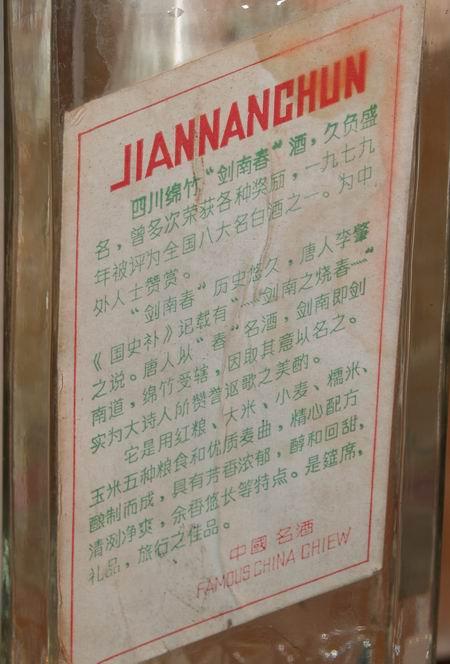 JIANNANCHUN
四川绵竹"剑南春"酒，久负盛
名，曾多次荣获各种奖励，一九七九
年被评为全国八大名白酒之一。为中
外人士赞赏。
"剑南春"历史悠久，唐人李肇
《国史补》记载有"……剑南之烧春……"
之说。唐人以"春"名酒，剑南即剑
南道，绵竹受辖，因取其意以名之。
实为大诗人所赞誉讴歌之美酌。
它是用红粮、大米、小麦、糯米、
玉米五种粮食和优质麦曲，精心配方
酿制而成，具有芳香浓郁，醇和回甜，
清冽净爽，余香悠长等特点。是筵席，
礼品，旅行之佳品。
中國 名酒
FAMOUS CHINA CHIEW